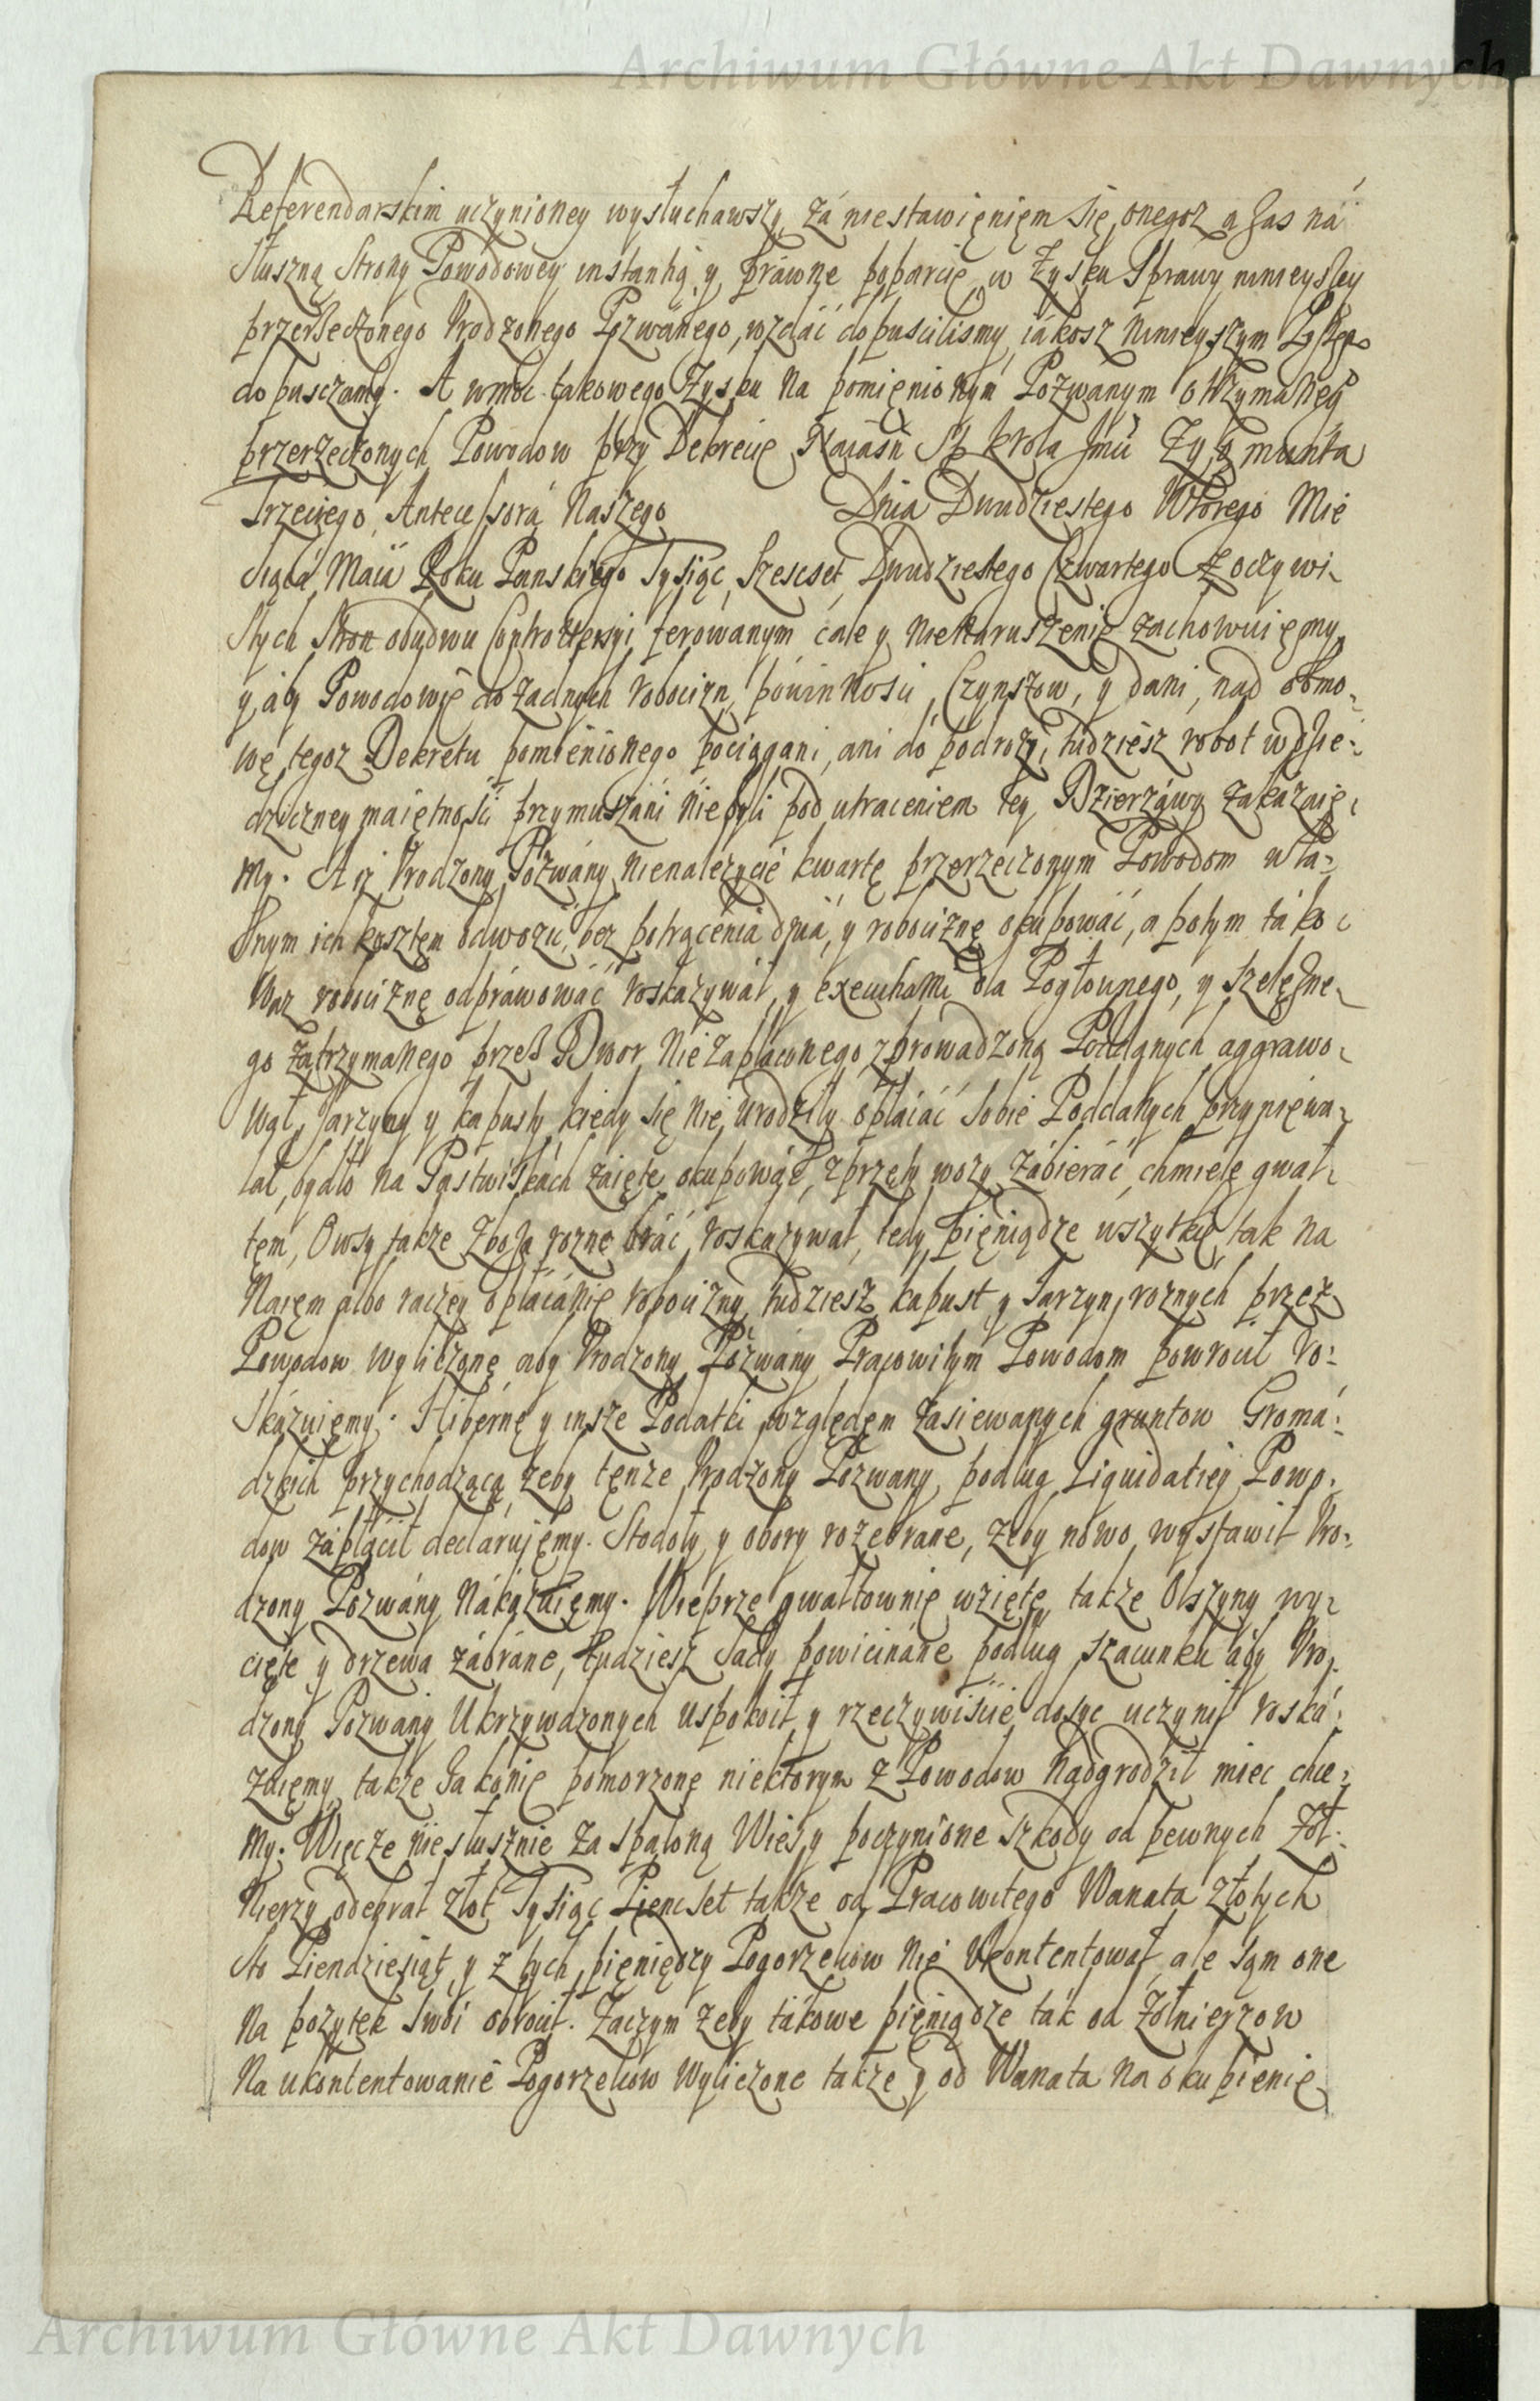 Archiwum Główne Akt Dawnych
Referendarskim uczynioney wysłuchawszy, zá niestawięnięm się onegoz a zas ná
słuszną Strony Powodowey instantią y práwne poparcie w Zysku Sprawy ninieyszey
przerzeczonego Vrodzonego Pozwánego, wzdáć dopuscilismy, iákosz ninieyszym
dopuszczamy. A wmoc takowego Zysku na pomięnionym Pozwanym otrzymaney
przerzeczonych Powodow przy Dekrecie Naiaśń Sp krola Jmći Zygmunta
Trzeciego, Antecessorá Naszego Dnia Dwudziestego Wtorego Mie
siąca Maia Roku Panskiego Tysiąc Szescset Dwudziestego Czwartego z oczywi-
stych Stron obudwu Controwersyi ferowanym całe y nienaruszenie zachowuięmy,
y áby Powodowie do żadnych robocizn, powinnosci, Czynszow, y dani, nad obmo-
wę tegoz Dekretu pomienionego pociągani, ani do podrozy, tudziesz robot w dzie-
dziczney maiętnosci przymuszáni niebyli pod utraceniem tey Dzierżáwy zakázuię-
my. A iż Vrodzony Pozwány nienalezycie kwartę przerzeczonym Powodom wła-
snym ich kosztem odwozic, bez potrącenia dniá, y robociznę okupowáć, a potym táko
waz robociznę odpráwowáć roskazywał, y executiami dla Pogłownego, y szelężne-
go zatrzymanego przesz Dwor niezapłaconego zprowadzoną Poddanych aggrawo-
wał, Jarzyny y kapusty kiedy się nie urodziły opłacáć sobie Poddanych przyniewa-
lał, bydło na Pastwiskách zaięte okupowáć, zprzęty wozy zábieráć, chmiele gwał-
tem, Owsy także Zboża rozne bráć roskazywał, tedy pięniądze wszytkie, tak na
Naięm albo raczey opłácánie robocizny, tudziesz kapust y Jarzyn roznych przez
Powodow wyliczone, aby Vrodzony Pozwány Pracowitym Powodom powrocił ro-
skázuięmy. Hibernę y insze Podatki względęm zasiewanych gruntow Gromá-
dzkich przychodzącą żeby tęnze Vrodzony Pozwany, podług Liquidatiey Powo-
dow zápłácił declarujęmy. Stodoły y obory rozebrane, żeby nowo wystawił Vro-
dzony Pozwány nákázuięmy. Wieprze gwałtownie wzięte, także Olszyny wy-
cięte y drzewa zábráne, tudziesz Sady powicináne podług szacunku áby Vro-
dzony Pozwány Ukrzywdzonych uspokoił y rzeczywiście dosyc uczynił roská-
zuięmy, także Ja konie pomorzone niektorym z Powodow nádgrodził miec chce-
my. Więcze niesłusznie za spaloną Wieś y poczynione szkody od pewnych Żoł-
nierzy odebrał złot. Tysiąc Piencset także od Pracowitego Wanata złotych
sto Piendziesiąt y z tych pięniędzy Pogorzelcow nie Vkontentował, ale sąm one
na pożytek swoi obrocił. Zaczym żeby tákowe pięniądze ták od żołnierzow
na ukontentowanie Pogorzelcow wyliczone także y od Wanata na okupięnie
Archiwum Główne Akt Dawnych